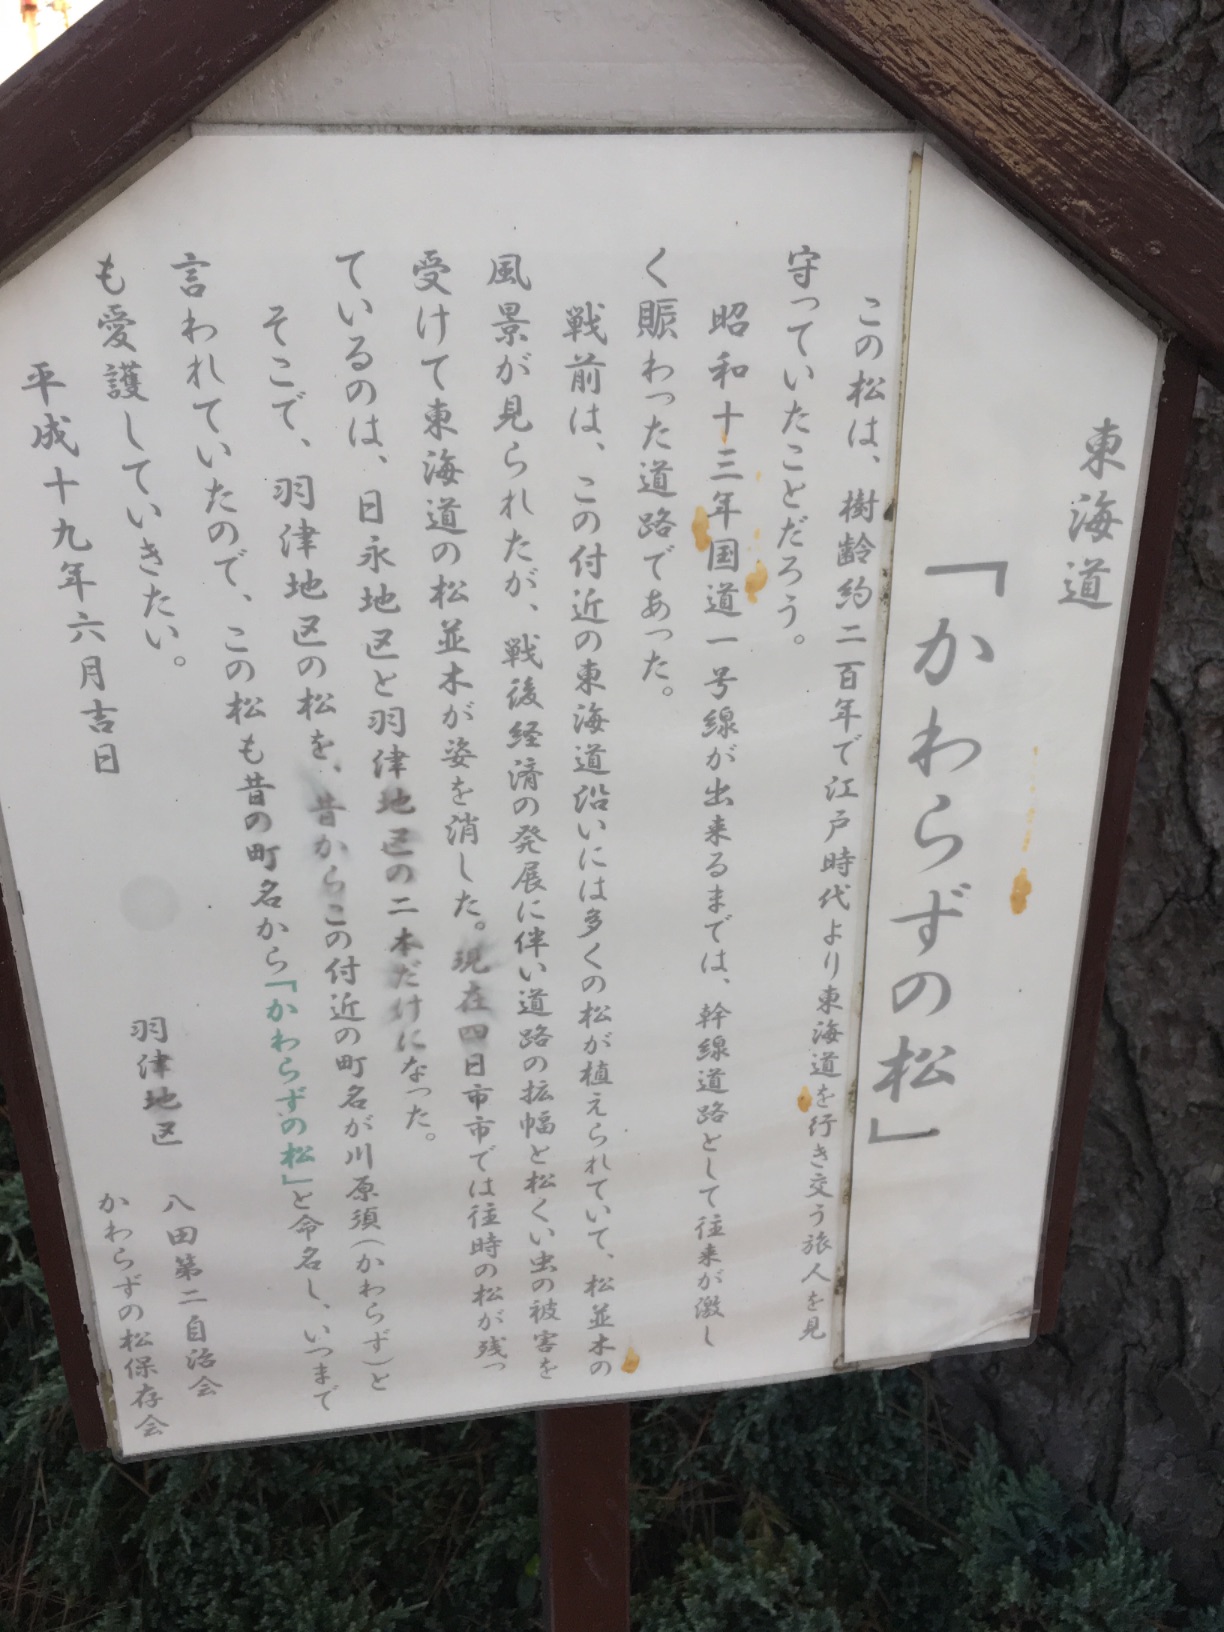 東海道
「かわらずの松」
この松は、樹齢約二百年で江戸時代より東海道を行き交う旅人を見
守っていたことだろう。
昭和十三年国道一号線が出来るまでは、幹線道路として往来が激し
く賑わった道路であった。
戦前は、この付近の東海道沿いには多くの松が植えられていて、松並木の
風景が見られたが、戦後経済の発展に伴い道路の拡幅と松くい虫の被害を
受けて東海道の松並木が姿を消した。現在四日市市では往時の松が残っ
ているのは、日永地区と羽津地区の二本だけになった。
そこで、羽津地区の松を、昔からこの付近の町名が川原須(かわらず)と
言われていたので、この松も昔の町名から「かわらずの松」と命名し、いつまで
も愛護していきたい。
平成十九年六月吉日
羽津地区 八田第二自治会
かわらずの松保存会